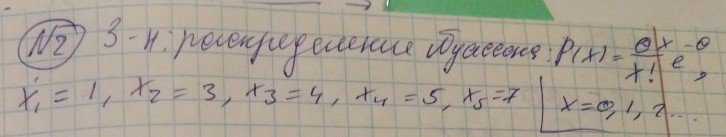 №2 З-н: распределение Пуассона: P(x) = θ^x/x! e^-θ,
x₁ = 1, x₂ = 3, x₃ = 4, x₄ = 5, x₅ = 7 | x = 0, 1, 2...